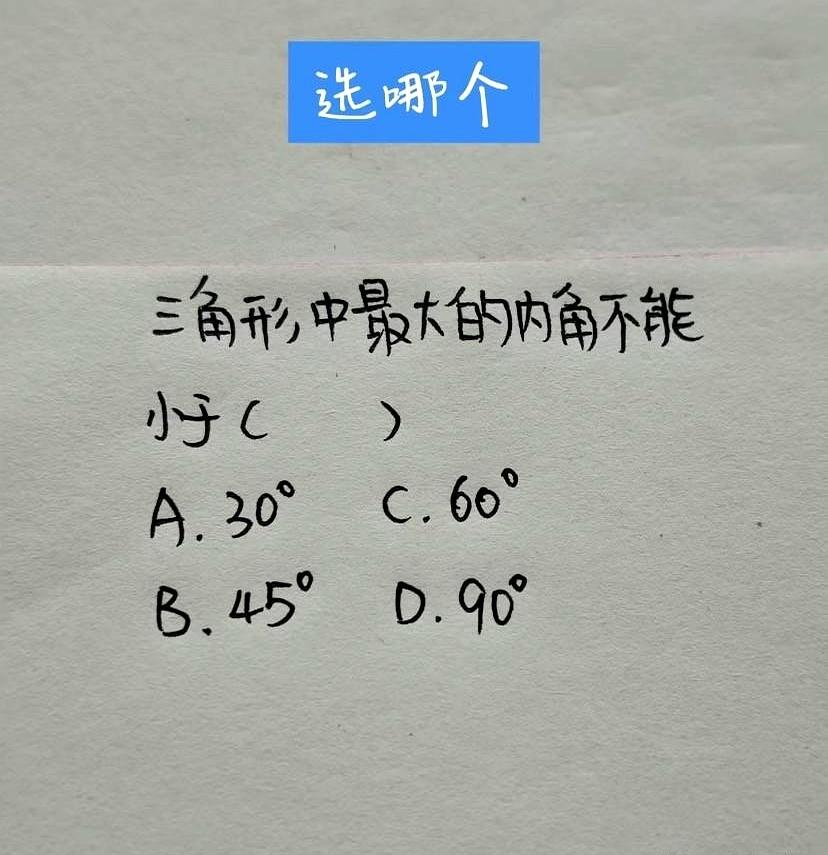 选哪个
三角形中最大的内角不能
小于( )
A.30° C.60°
B.45° D.90°